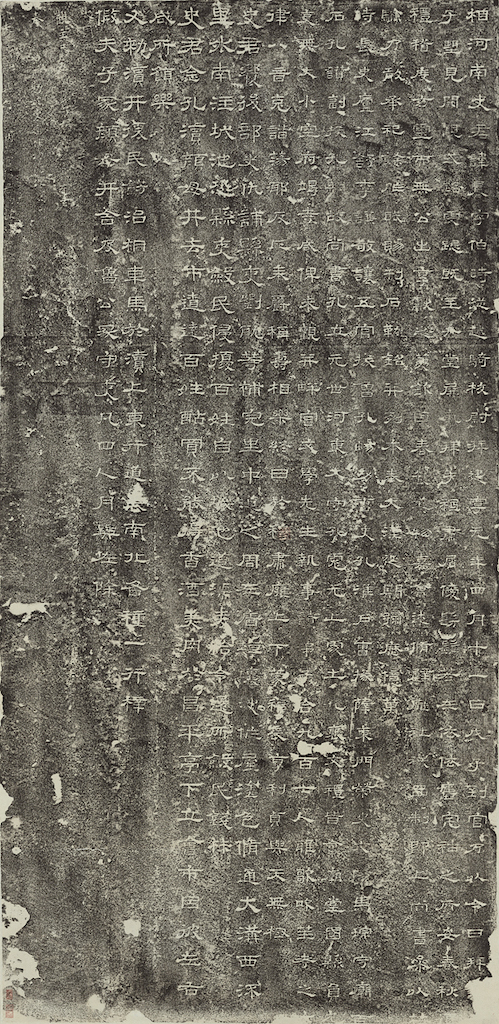 相河南史君諱晨字伯時從越騎校尉拜建寧元年四月十一日戊子到官乃以令日拜
子望見闕觀式路虔跽既至升堂屏氣拜手祗肅屑僾仿佛若在依依舊宅神之所安春秋
禮稽度玄靈而無公出享獻之薦欽因春饗導物嘉會述脩辟雍社稷品制即上尚書參以符
驗乃敢承祀餘胙賦賜刊石勒銘并列本奏大漢延期彌歷億萬
時長史廬江舒李謙敬讓五官掾魯孔暢功曹史孔淮戶曹掾薛東門榮史文陽馬琮守廟百
石孔讚副掾孔綱故尚書孔立元世河東大守孔彪元上處士孔褒文禮皆會廟堂國縣員冗
吏無大小空府竭寺咸俾來觀并畔宮文學先生執事諸弟子合九百七人雅歌吹笙考之六
律八音克諧蕩邪反正奉爵稱壽相樂終日於穆肅雍上下蒙福長享利貞與天無極
史君饗後部史仇誦縣吏劉耽等補完里中道之周左廧垣壞決作屋塗色脩通大溝西流
里外南注城池恐縣吏斂民侵擾百姓自以城池道濡麥給令還所斂民錢材
史君念孔瀆顏母井去市遼遠百姓酤買不能得香酒美肉於昌平亭下立會市因彼左右
咸所願樂
又敕瀆井復民飭治桐車馬於瀆上東行道表南北各種一行梓
假夫子冢顏母井舍及魯公冢守吏凡四人月與佐除